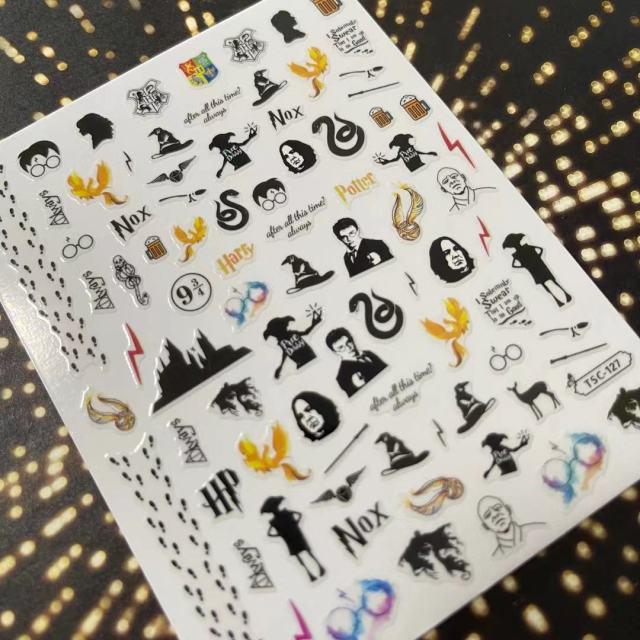 I Solemnly
Swear
That I am up
to no Good
after all this time?
always
Nox
Potter
Always
Nox
after all this time?
always
Harry
Always
9 3/4
I Solemnly
Swear
That I am up
to no Good
TSC-127
after all this time?
always
Always
HP
Nox
Always